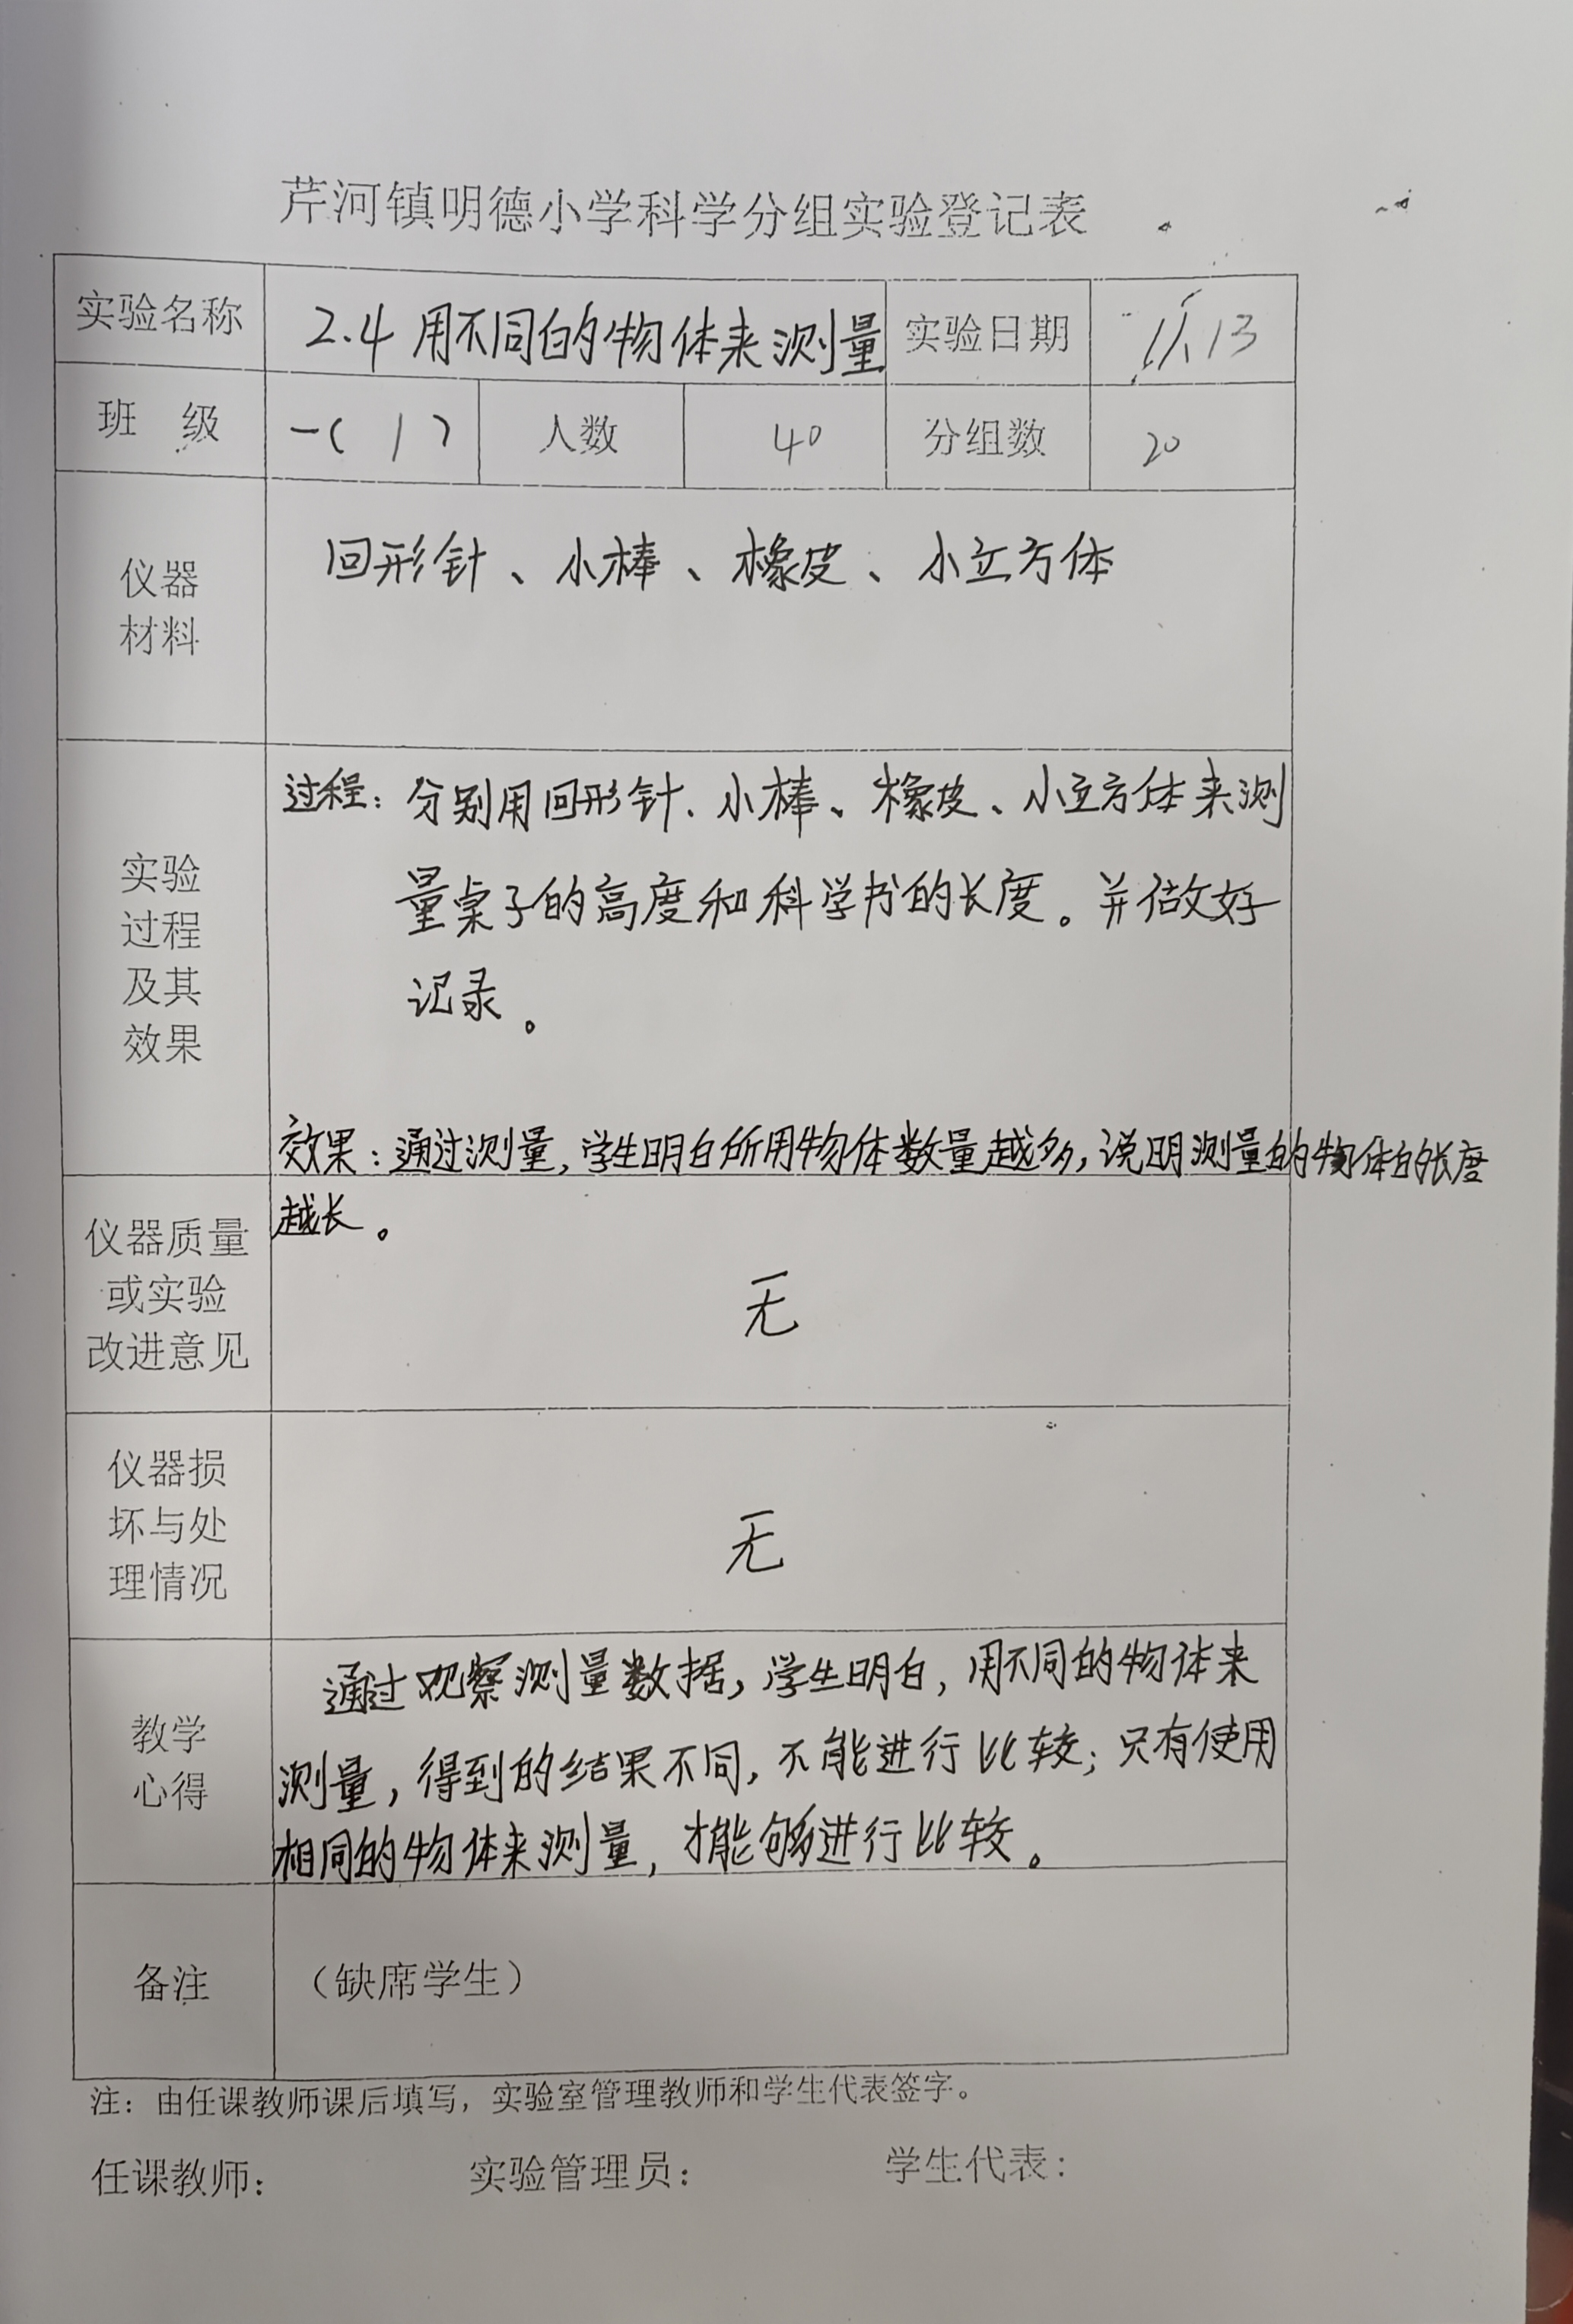 芹河镇明德小学科学分组实验登记表
实验名称 2.4 用不同的物体来测量 实验日期 11.13
班 级 一(1) 人数 40 分组数 20
仪器
材料
回形针、小棒、橡皮、小立方体
实验
过程
及其
效果
过程：分别用回形针、小棒、橡皮、小立方体来测
量桌子的高度和科学书的长度。并做好
记录。
效果：通过测量，学生明白所用物体数量越多，说明测量的物体的长度
越长。
仪器质量
或实验
改进意见
无
仪器损
坏与处
理情况
无
教学
心得
通过观察测量数据，学生明白，用不同的物体来
测量，得到的结果不同，不能进行比较；只有使用
相同的物体来测量，才能够进行比较。
备注 （缺席学生）
注：由任课教师课后填写，实验室管理教师和学生代表签字。
任课教师： 实验管理员： 学生代表：